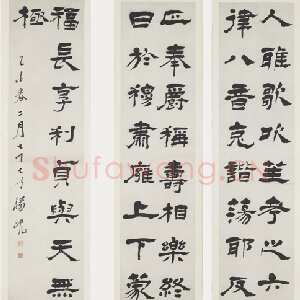 人雅歌吹笙考之六
律八音克諧蕩邪反
正奉爵稱壽相樂終
日於穆肅雍上下蒙
福長享利貞與天無
極
春二月